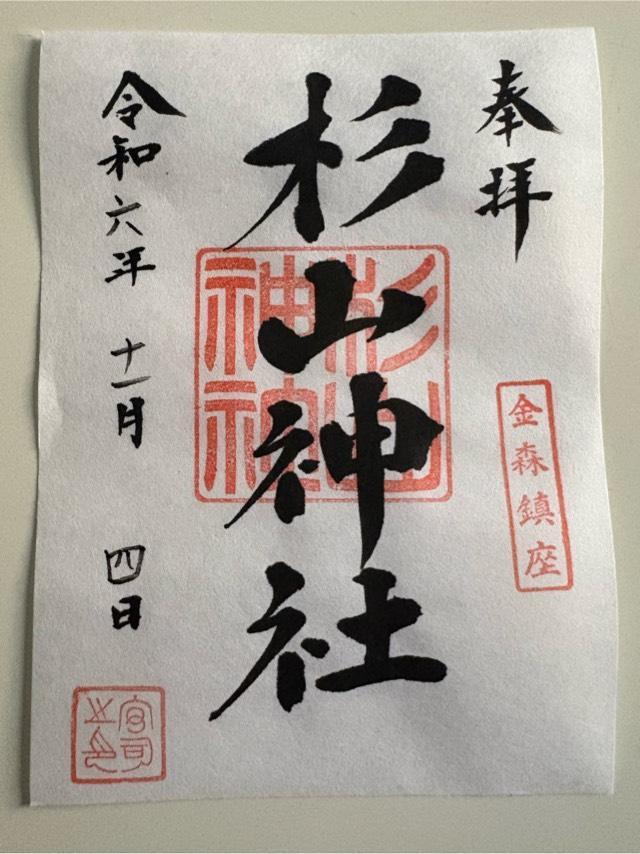 奉拝
金森鎮座
杉山神社
令和六年 十一月 四日
宮司之印